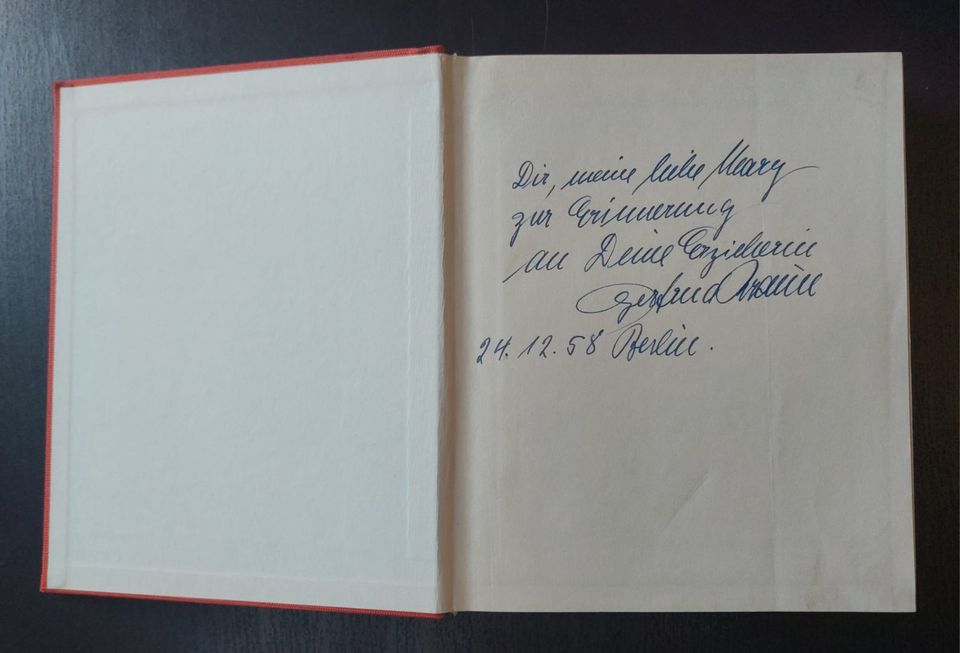 Dir, meine liebe Mary
zur Erinnerung
an Deine Erzieherin
Gertrud
24.12.58 Berlin.